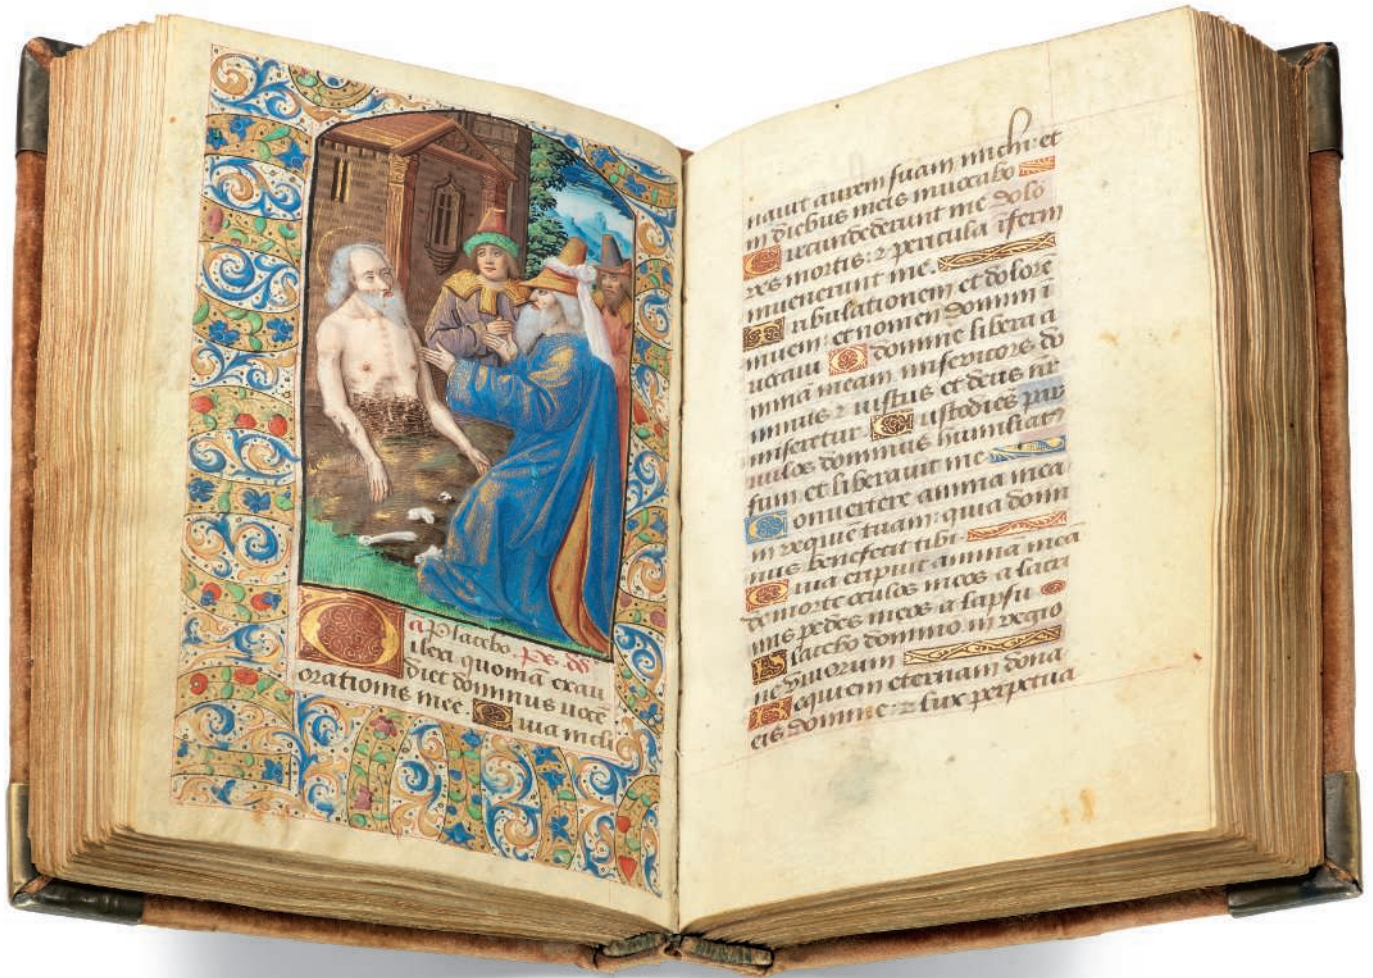 a Placebo. ps. dd
Dilexi quoniā exau
diet dominus uocē
orationis mee. Quia incli
nauit aurem suam michi: et
in diebus meis inuocabo
Circundederunt me dolo
res mortis: ⁊ pericula īferni
inuenerunt me.
Tribulationem et dolorē
inueni: et nomen domini ī
uocaui O domine libera a
nimā meam misericors do
minus ⁊ iustus et deus nr̄
miseretur. Custodiēs par
uulos dominus humiliat⁹
sum et liberauit me
Conuertere anima mea
in requiē tuam: quia domi
nus benefecit tibi.
Quia eripuit animā meā
de morte oculos meos a lacri
mis pedes meos a lapsu
Placebo domino in regio
ne viuorum
Requiem eternam dona
eis domine: ⁊ lux perpetua